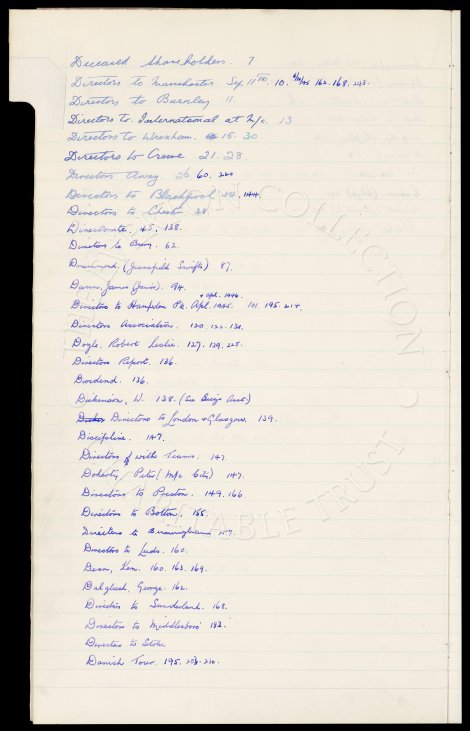 Deceased Shareholders. 7
Directors to Manchester Sep 11TH. 10. 162. 168. 243.
Directors to Burnley 11.
Directors to International at M/c. 13
Directors to Wrexham. 15. 30.
Directors to Crewe 21. 28.
Directors Away. 26 60. 220
Directors to Blackpool 34. 144.
Directors to Chester 38.
Directorate, 45, 138.
Directors to Bury. 62.
Drummond, (Jeansfield Swifts) 87.
Dunn, James (Junior). 94.
+ Apl. 1946.
Directors to Hampden Pk. Apl. 1945. 101. 195. 214.
Directors Association. 120. 122. 131.
Doyle, Robert Leslie. 127. 129. 225.
Directors Report. 136.
Dividend. 136.
Dickinson, W. 138. (See Secy's Asst)
Directors to London & Glasgow. 139.
Discipline. 147.
Directors with Teams. 147.
Doherty, Peter (M/c City) 147.
Directors to Preston. 149. 166.
Directors to Bolton. 155.
Directors to Birmingham 157.
Directors to Leeds. 160.
Dean, Ken. 160. 163. 169.
Dalgliesh, George. 162.
Directors to Sunderland. 168.
Directors to Middlesboro' 182.
Directors to Stoke
Danish Tour. 195. 208. 210.
COLLECTION
TABLE TRUST